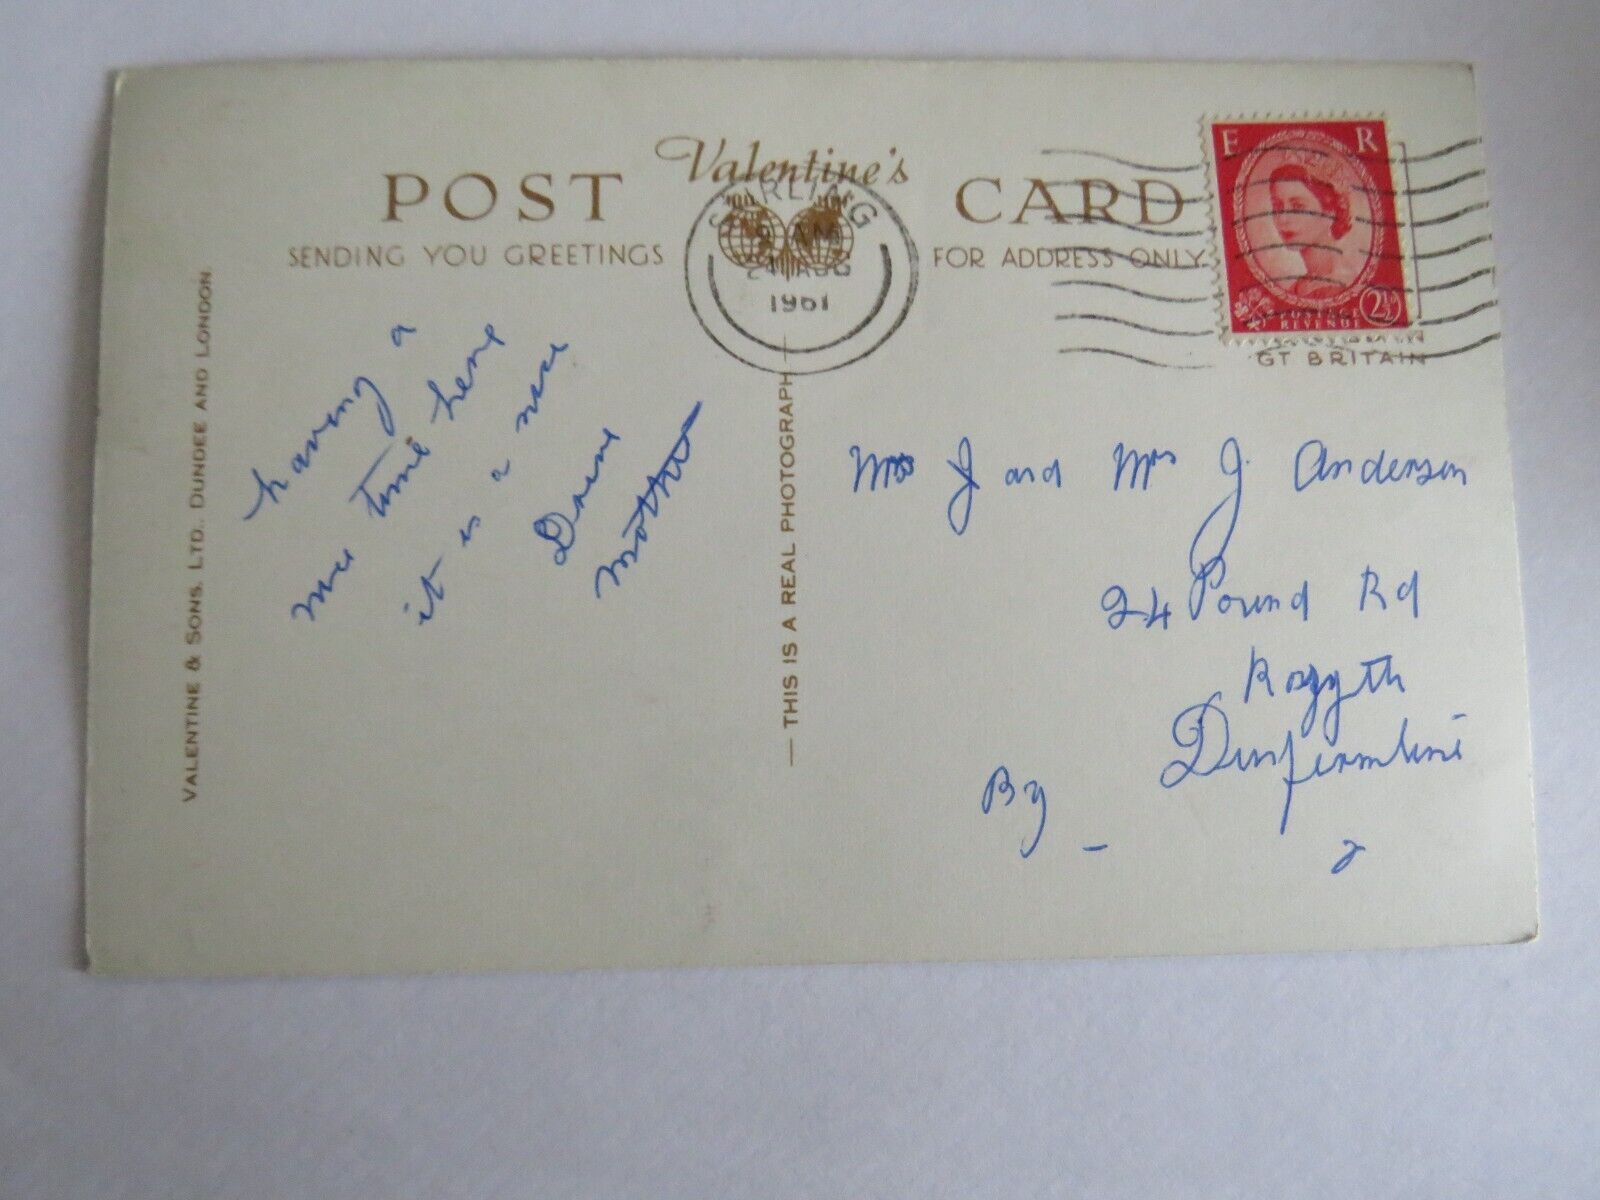 POST Valentine's CARD
SENDING YOU GREETINGS
FOR ADDRESS ONLY
STIRLING
9 AM
24 AUG
1961
E R
POSTAGE
REVENUE
2½
GT BRITAIN
VALENTINE & SONS. LTD., DUNDEE AND LONDON.
THIS IS A REAL PHOTOGRAPH
having a
nice time here
it is a nice
Mother
Mrs J and Mrs J. Anderson
24 Pound Rd
Rosyth
Dunfermline
By